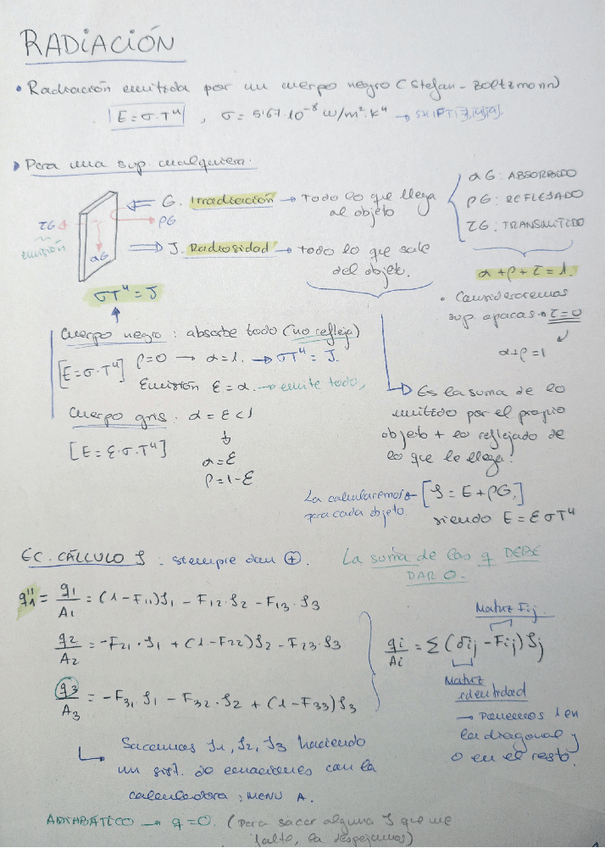 RADIACIÓN
• Radiación emitida por un cuerpo negro (Stefan-Boltzmann)
E=σ·T⁴ , σ=5'67·10⁻⁸ W/m²·K⁴ →
▸ Para una sup. cualquiera.
G. Irradiación → Todo lo que llega
al objeto
αG: ABSORBIDO
ρG: REFLEJADO
τG: TRANSMITIDO
τG
emisión
ρG
αG
J. Radiosidad → todo lo que sale
del objeto.
α+ρ+τ=1.
σT⁴=J
• Consideraremos
sup. opacas → τ=0
α+ρ=1
Cuerpo negro: absorbe todo (no refleja)
[E=σ·T⁴] ρ=0 → α=1. → σT⁴=J.
Emisión ε=α. → emite todo,
Cuerpo gris. α=ε<1
[E=ε·σ·T⁴]
α=ε
ρ=1-ε
Es la suma de lo
emitido por el propio
objeto + lo reflejado de
lo que le llega.
La calcularemos
para cada objeto.
[J=E+ρG.]
siendo E=εσT⁴
EC. CÁLCULO J: siempre dan ⊕.
La suma de las q DEBE
DAR 0.
q₁''=q₁/A₁=(1-F₁₁)J₁-F₁₂·J₂-F₁₃·J₃
q₂/A₂=-F₂₁·J₁+(1-F₂₂)J₂-F₂₃·J₃
q₃/A₃=-F₃₁·J₁-F₃₂·J₂+(1-F₃₃)J₃
Matriz Fij.
qi/Ai=Σ(δij-Fij)Jj
Matriz
identidad
→ Ponemos 1 en
la diagonal y
0 en el resto.
Sacamos J₁, J₂, J₃ haciendo
un sist. de ecuaciones con la
calculadora: MENU A.
ADIABÁTICO → q=0. (Para sacar alguna J que me
falte, la despejamos)